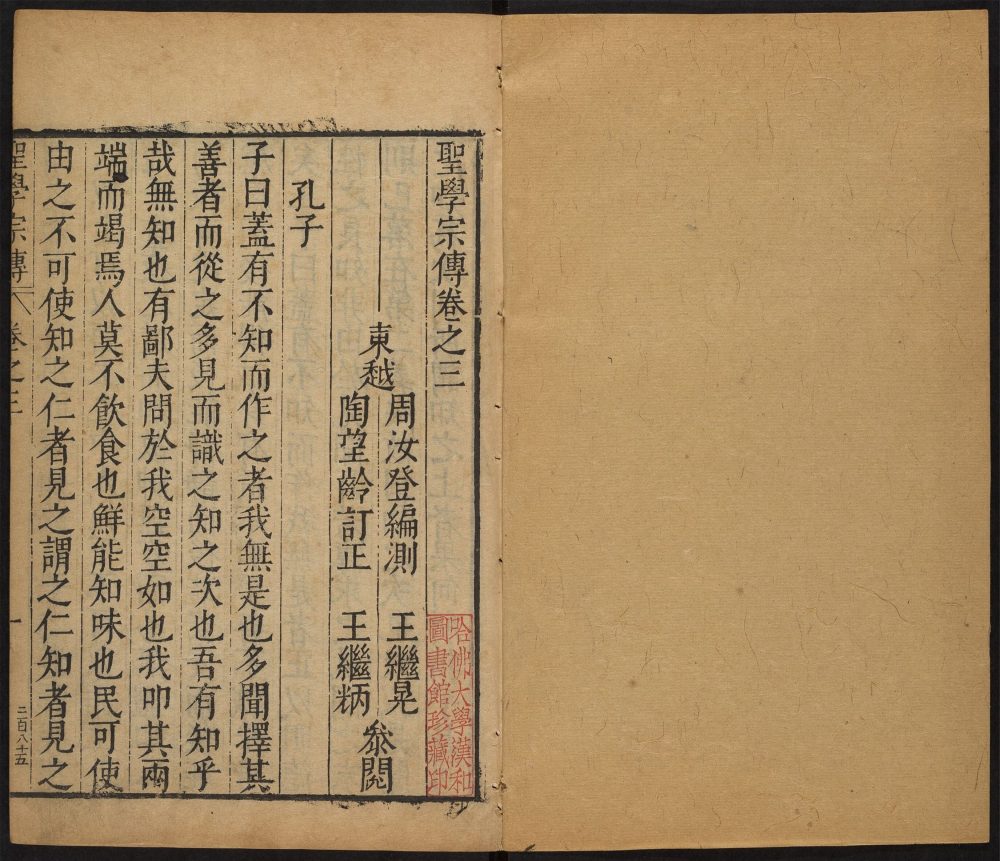 聖學宗傳卷之三
東越
周汝登編測
陶望齡訂正
王繼晃
王繼炳
叅閱
哈佛大學漢和
圖書館珍藏印
孔子
子曰蓋有不知而作之者我無是也多聞擇其
善者而從之多見而識之知之次也吾有知乎
哉無知也有鄙夫問於我空空如也我叩其兩
端而竭焉人莫不飲食也鮮能知味也民可使
由之不可使知之仁者見之謂之仁知者見之
聖學宗傳 卷之三 一 二百八十五